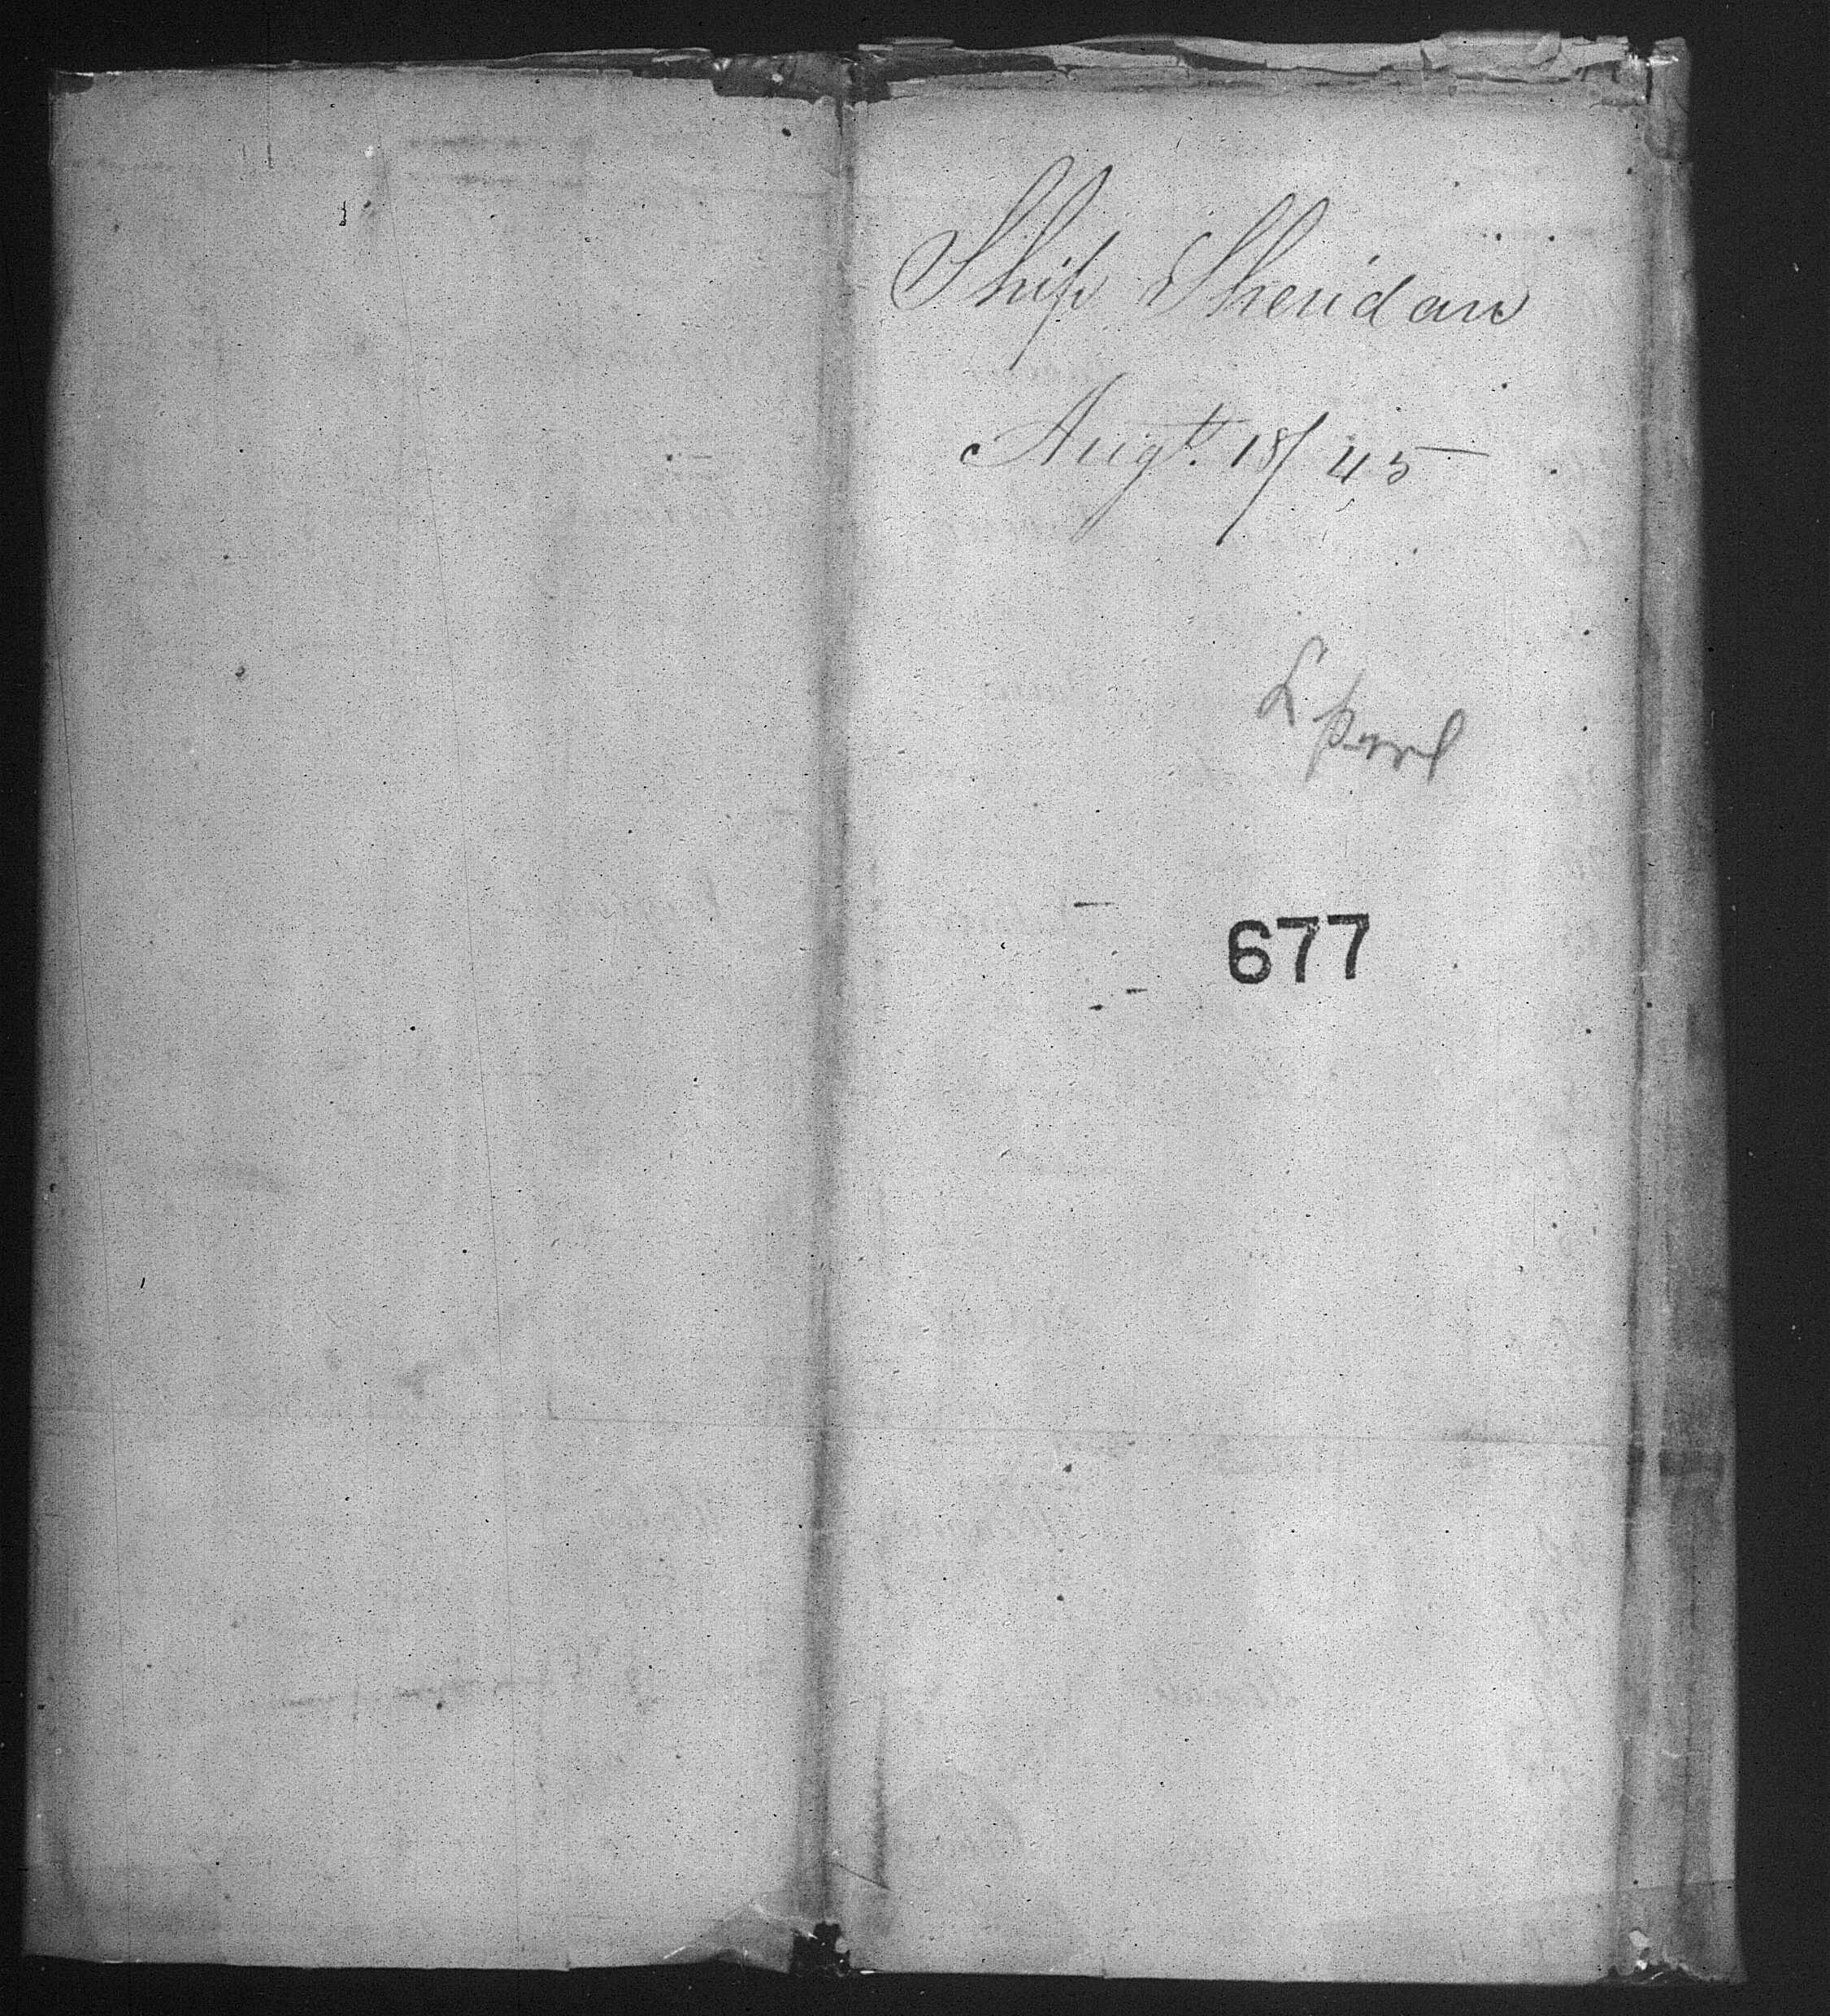 Ship Sheridan
Augt. 18/45
L'pool
677